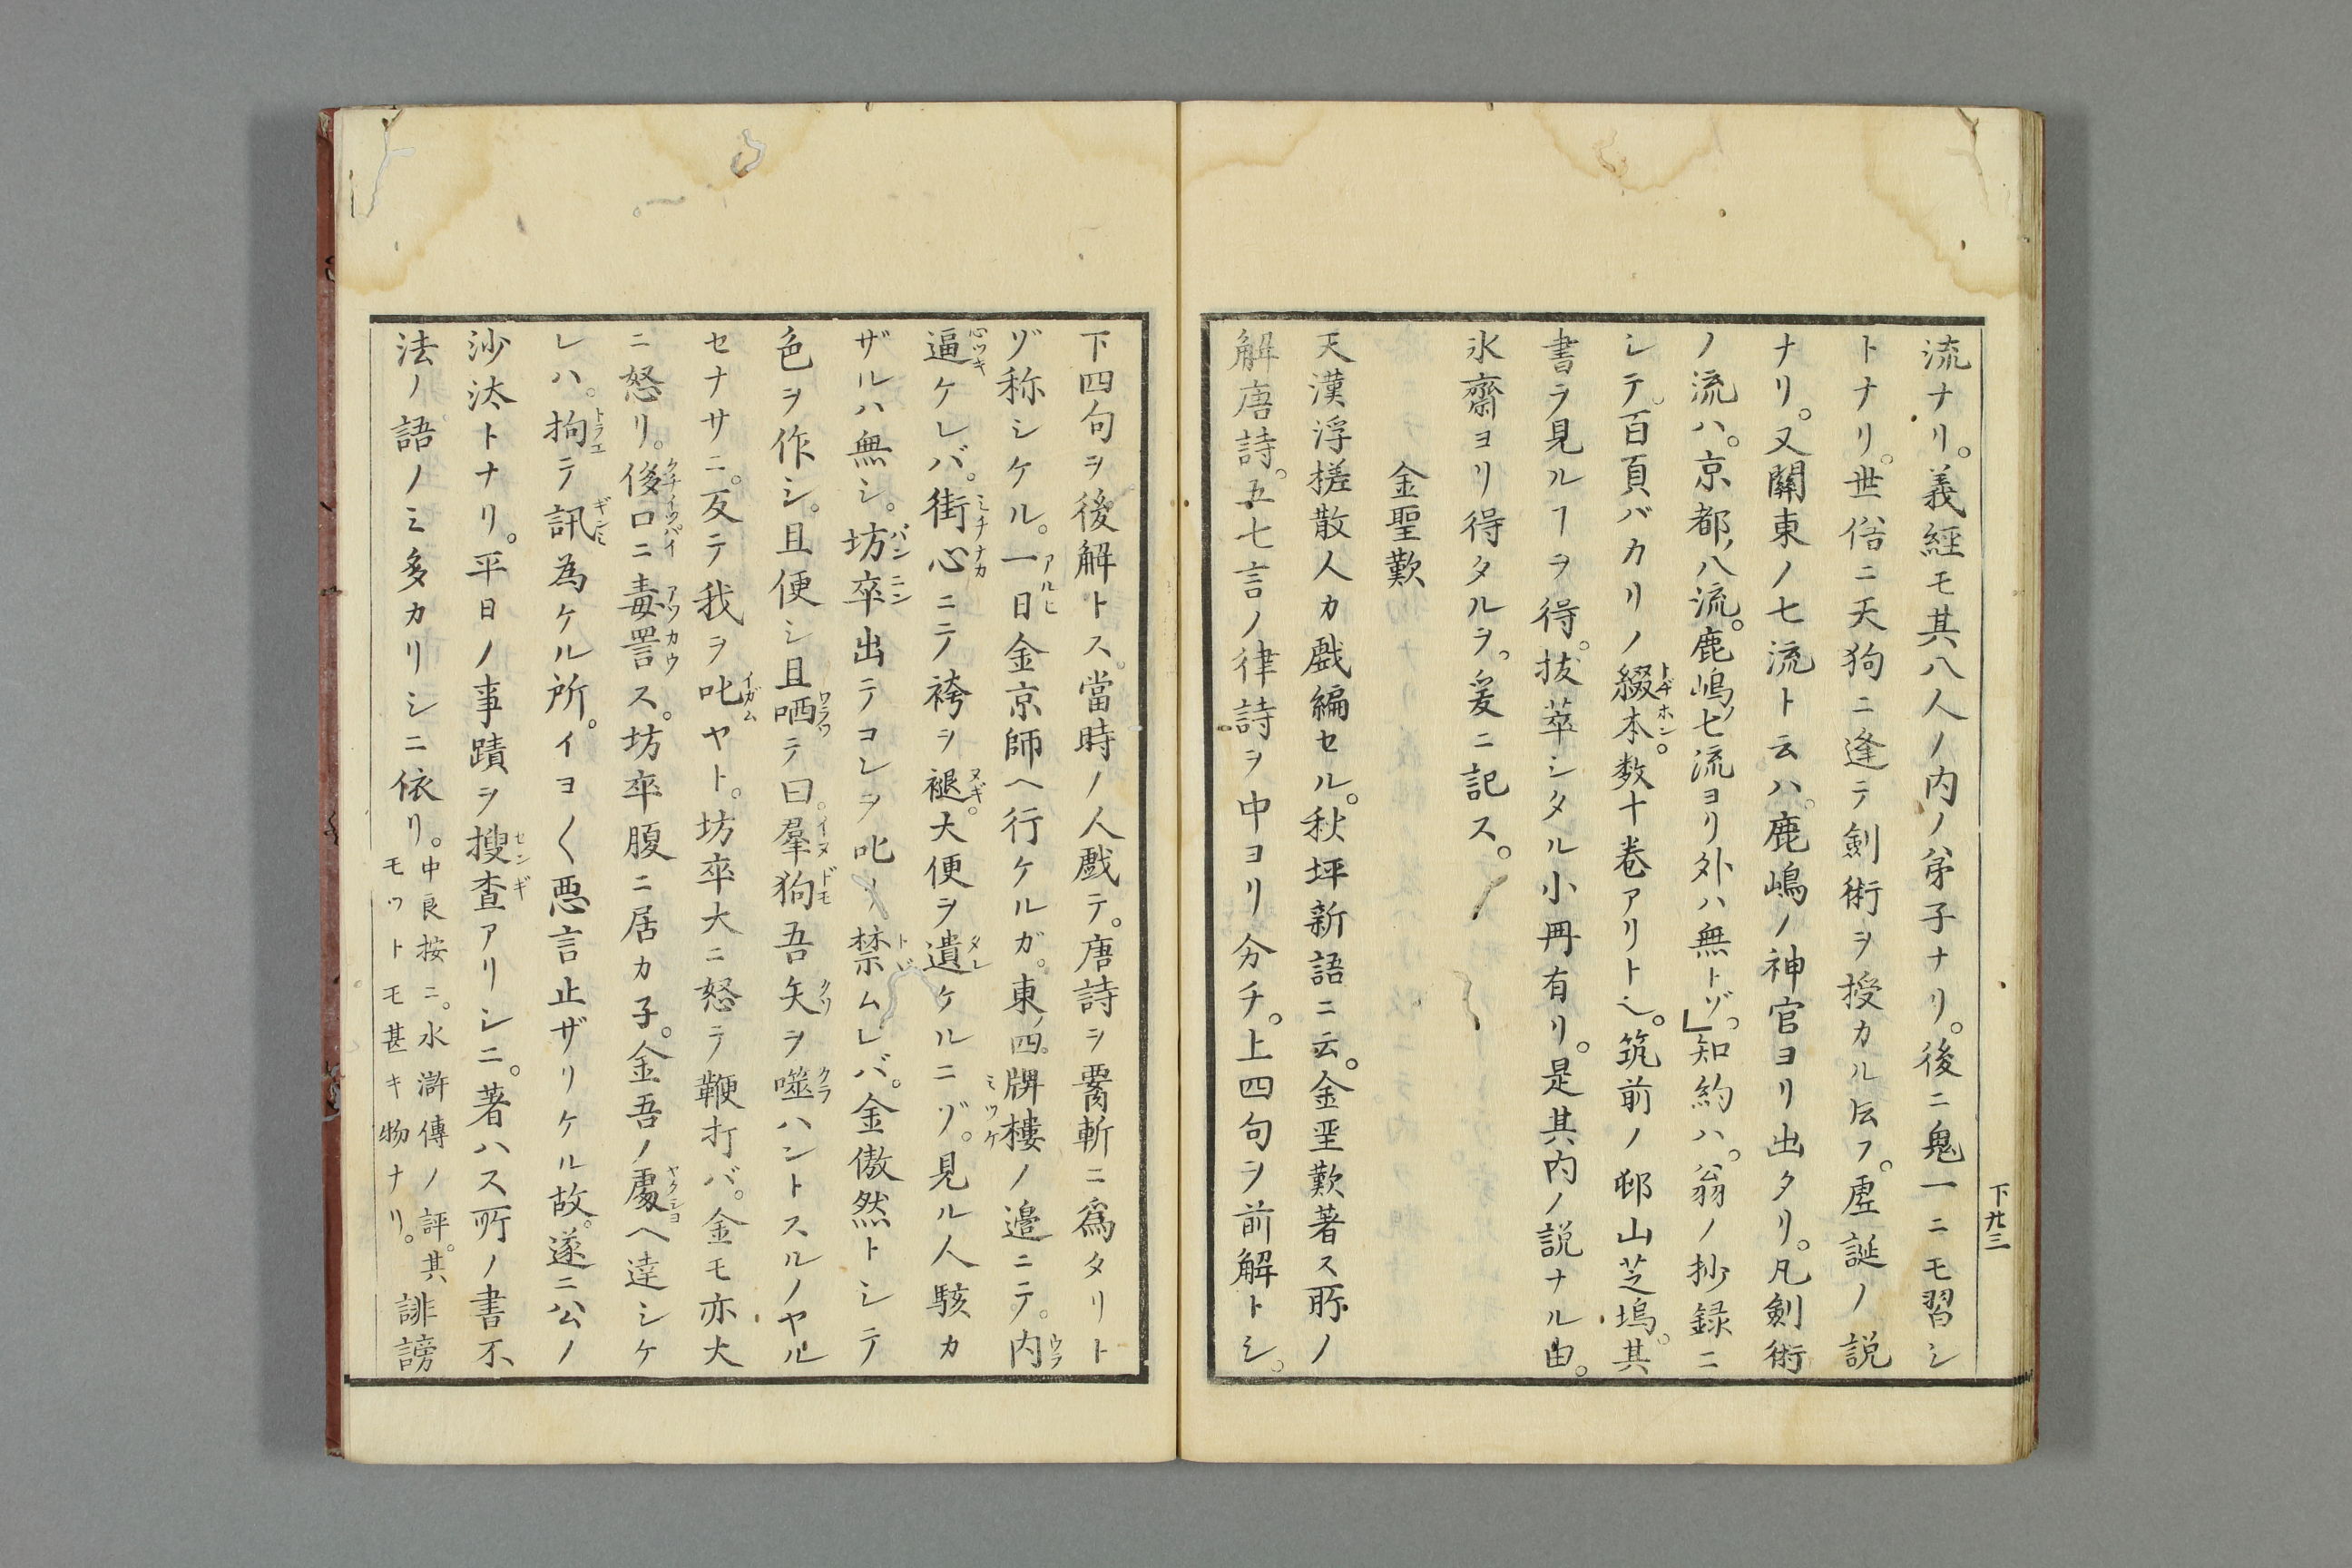 流ナリ。義經モ其八人ノ内ノ弟子ナリ。後ニ鬼一ニモ習シ
トナリ。世俗ニ天狗ニ逢テ劍術ヲ授カル伝フ。虚誕ノ説
ナリ。又關東ノ七流ト云ハ。鹿嶋ノ神官ヨリ出タリ。凡劍術
ノ流ハ。京都ノ八流。鹿嶋ノ七流ヨリ外ハ無トゾ。」知約ハ。翁ノ抄録ニ
シテ。百頁バカリノ綴本。数十巻アリトシ。筑前ノ邨山芝塢。其
トヂホン
書ヲ見ルヿヲ得。抜萃シタル小冊有リ。是其内ノ説ナル由。
氷齋ヨリ得タルヲ。爰ニ記ス。
金聖歎
天漢浮槎散人カ戯編セル。秋坪新語ニ云。金聖歎著ス所ノ
解唐詩。五七言ノ律詩ヲ中ヨリ分チ。上四句ヲ前解トシ。
下廿三
下四句ヲ後解トス。當時ノ人戯テ。唐詩ヲ腰斬ニ爲タリト
ゾ称シケル。一日金京師ヘ行ケルガ。東ノ四牌樓ノ邉ニテ。内
アルヒ
ウラ
逼ケレバ。街心ニニテ袴ヲ褪。大便ヲ遺ケルニゾ。見ル人駭カ
心ツキ
ミチナカ
ヌギ
タレ
ミツケ
ザルハ無シ。坊卒出テコレヲ叱ノ禁ムレバ。金傲然トシテ
バンニン
色ヲ作シ。且便シ且哂テ曰。羣狗吾矢ヲ噬ハントスルノヤル
ワラワ
イヌドモ
クソ
クラ
セナサニ。反テ我ヲ叱ヤト。坊卒大ニ怒テ鞭打バ。金モ亦大
イガム
ニ怒リ。侈口ニ毒詈ス。坊卒腹ニ居カ子。金吾ノ處ヘ達シケ
クチイツパイ
アツカウ
ヤクシヨ
レハ。拘テ訊為ケル所。イヨ〱悪言止ザリケル故。遂ニ公ノ
トラエ
ギンミ
沙汰トナリ。平日ノ事蹟ヲ搜査アリシニ。著ハス所ノ書不
センギ
法ノ語ノミ多カリシニ依リ。中良按ニ。水滸傳ノ評。其誹謗
モツトモ甚キ物ナリ。